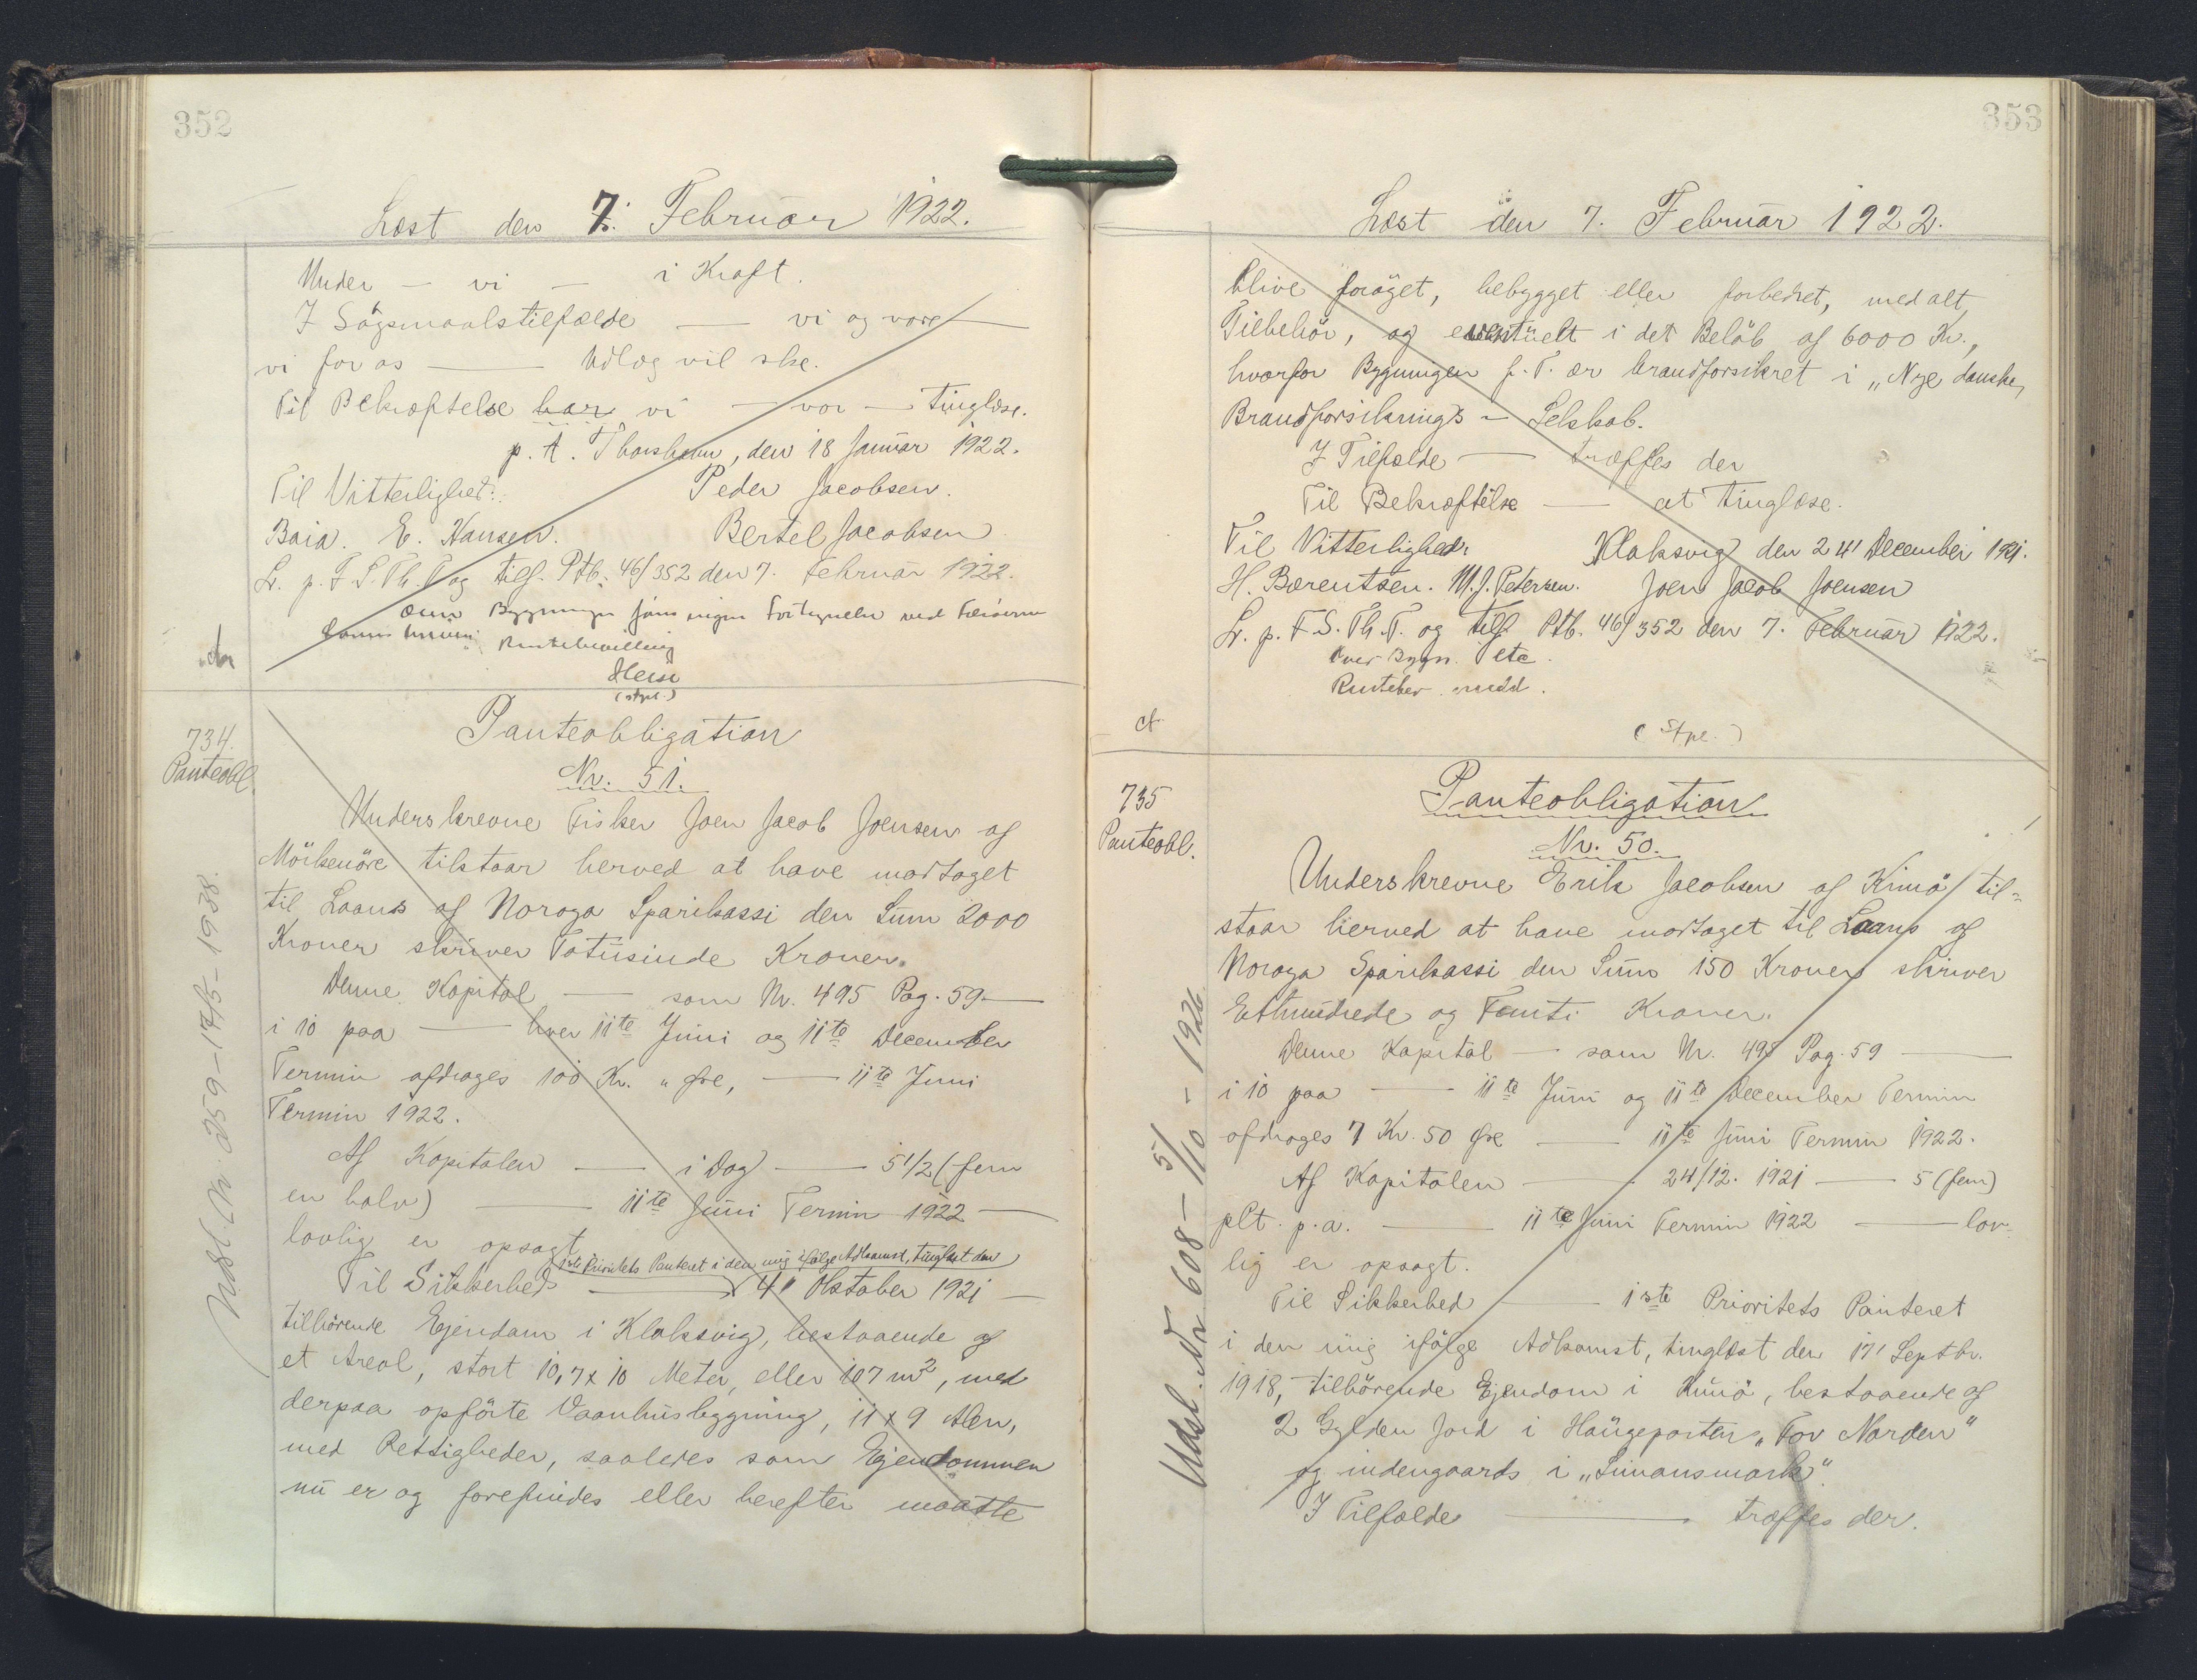 352
Læst den 7. Februar 1922.
Under — vi — i Kraft.
I Sögsmaalstilfælde — vi og vore —
vi for os — Udlæg vil ske.
Til Bekræftelse har vi — vor — tinglæse.
p. t. Thorshavn, den 18 Januar 1922.
Til Vitterlighed: Peder Jacobsen.
E. Hansen. Bertel Jacobsen
L. p. F. S. Th. T og tilf. Ptb. 46/352 den 7. Februar 1922.
Rentebevilling
(stpl.)
734.
Panteobl.
Panteobligation
Nr. 51.
Underskrevne Fisker Joen Jacob Joensen af
Mörkenöre tilstaar herved at have modtaget
til Laans af Noroya Sparikassi den Sum 2000
Kroner skriver Totusinde Kroner.
Denne Kapital — som Nr. 495 Pag. 59 —
i 10 paa — hver 11te Juni og 11te December
Termin afdrages 100 Kr. " Øre, — 11te Juni
Termin 1922.
Af Kapitalen — i Dag — 5 1/2 (fem
en halv) — 11te Juni Termin 1922 —
lovlig er opsagt
1ste Prioritets Panteret i den mig ifölge Adkomst, tinglæst den
Til Sikkerhed — 4' Oktober 1921 —
tilhörende Ejendom i Klaksvig, bestaaende af
et Areal, stort 10,7 x 10 Meter, eller 107 m2, med
derpaa opförte Vaanhusbygning, 11 x 9 Alen,
med Rettigheder, saaledes som Ejendommen
nu er og forefindes eller herefter maatte
Udsl. Nr. 259 – 17/5 – 1938.
353
Læst den 7. Februar 1922.
blive foröget, bebygget eller forbedret, med alt
Tilbehör, og eventuelt i det Belöb af 6000 Kr.,
hvorfor Bygningen p. T. er brandforsikret i „Nye danske
Brandforsikrings - Selskab.
I Tilfælde — træffes der
Til Bekræftelse — at tinglæse.
Til Vitterlighed: Klaksvig den 24' December 1921.
H. Bærentsen. M. J. Petersen. Joen Jacob Joensen
L. p. F. S. Th. T. og tilf. Ptb. 46/352 den 7. Februar 1922.
Over Bygn. etc.
Rentebev. medd.
(Stpl.)
735
Panteobl.
Panteobligation
Nr. 50.
Underskrevne Erik Jacobsen af Kunö til-
staar herved at have modtaget til Laans af
Noroya Sparikassi den Sum 150 Kroner skriver
Ethundrede og Femti Kroner.
Denne Kapital — som Nr. 495 Pag. 59 —
i 10 paa — 11te Juni og 11te December Termin
afdrages 7 Kr. 50 Øre — 11te Juni Termin 1922.
Af Kapitalen — 24/12. 1921 — 5 (fem)
pCt. p. a. — 11te Juni Termin 1922 — lov-
lig er opsagt.
Til Sikkerhed — 1ste Prioritets Panteret
i den mig ifölge Adkomst, tinglæst den 17' Septbr.
1918, tilhörende Ejendom i Kunö, bestaaende af
2 Gylden Jord i Haugeparten „For Norden"
og indengaards i „Simansmark".
I Tilfælde — træffes der.
Udsl. Nr 608 – 5/10 – 1926